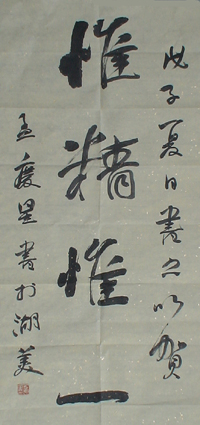 戊子夏日書之以賀
惟精惟一
孟慶星書於湖美